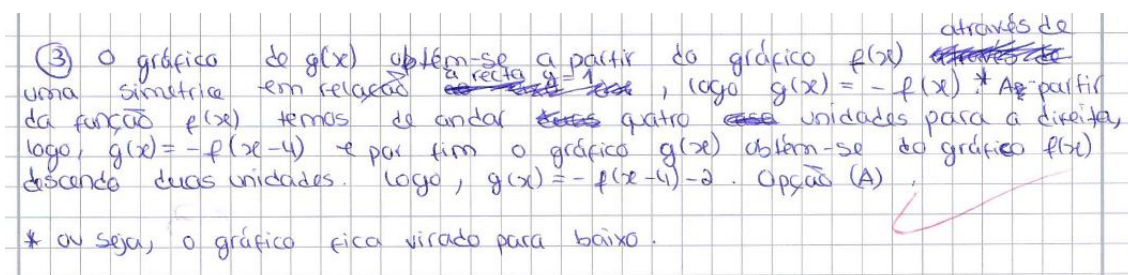 através de
③ O gráfico de g(x) obtém-se a partir do gráfico f(x)
à recta y=1
uma simetrica em relação , logo g(x) = - f(x).* A partir
da função f(x) temos de andar quatro unidades para a direita,
logo, g(x) = - f(x-4) e por fim o gráfico g(x) obtém-se do gráfico f(x)
descendo duas unidades. Logo, g(x) = - f(x-4)-2. Opção (A).
* ou seja, o gráfico fica virado para baixo.